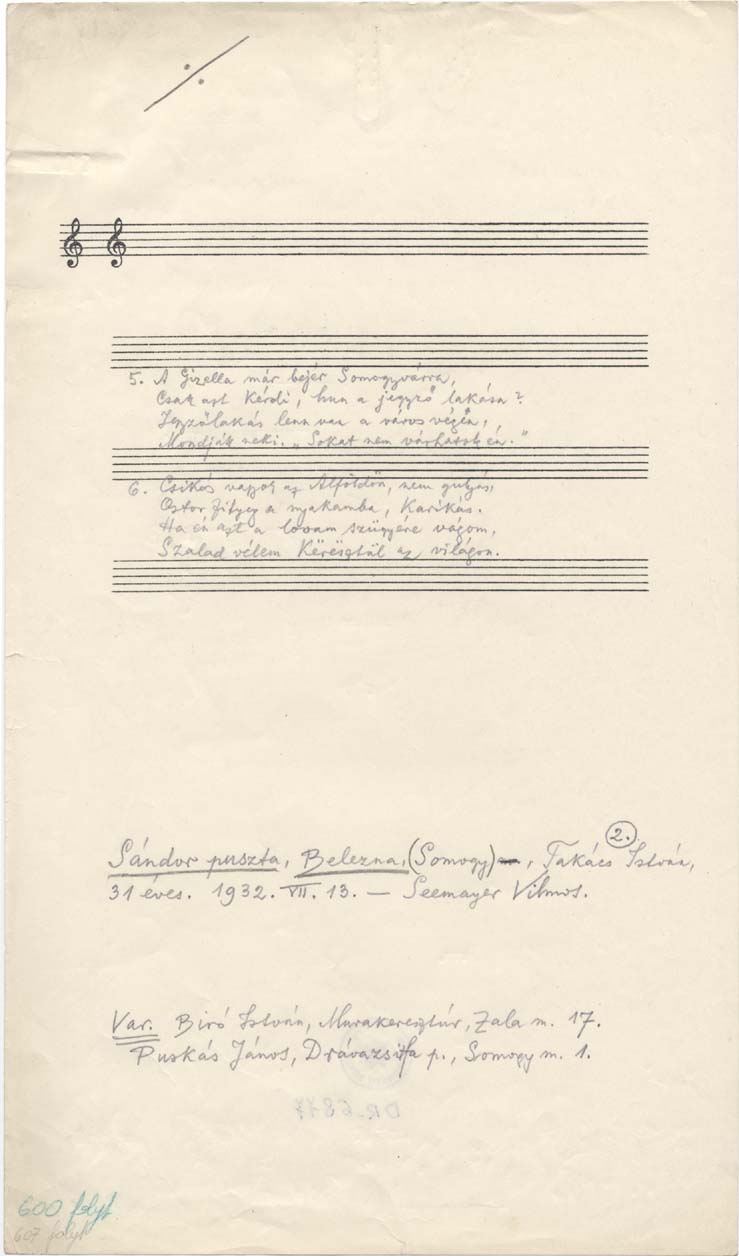 5. A Gizella már bejér Somogyvárra,
Csak azt kérdi, hun a jegyző lakása?
Jegyzőlakás lenn van a város végén,
Mondják neki. „Sokat nem várhatok én."
6. Csikós vagyok az Alföldön, nem gulyás,
Ostor fityeg a nyakamba, Karikás.
Ha én azt a lovam szügyére vágom,
Szalad vélem Körösztül az világon.
2.
Sándor puszta, Belezna, (Somogy), Takács István,
31 éves. 1932. VII. 13. — Seemayer Vilmos.
Var. Biró István, Murakeresztúr, Zala m. 17.
Puskás János, Drávazsófa p., Somogy m. 1.
DR-6817
600 folyt
607 folyt